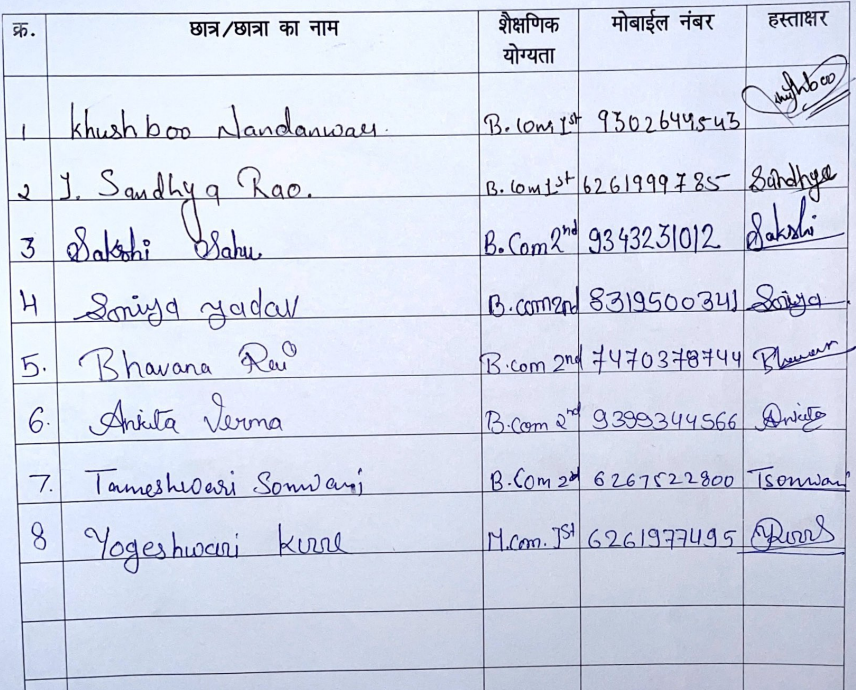 क्र. छात्र/छात्रा का नाम शैक्षणिक योग्यता मोबाईल नंबर हस्ताक्षर
1 Khushboo Nandanwar. B.Com 1st 9302644543 Khushboo
2 J. Sandhya Rao. B.Com 1st 6261999785 Sandhya
3 Sakshi Sahu B.Com 2nd 9343231012 Sakshi
4 Soniya Yadav B.com 2nd 8319500341 Soniya
5. Bhavana B.com 2nd 7470378744
6. Ankita Verma B.Com 2nd 9399344566 Ankita
7. Tameshwari Sonwani B.Com 2nd 6267522800 Tsonwani
8 Yogeshwari Kurre M.com. 1st 6261977495